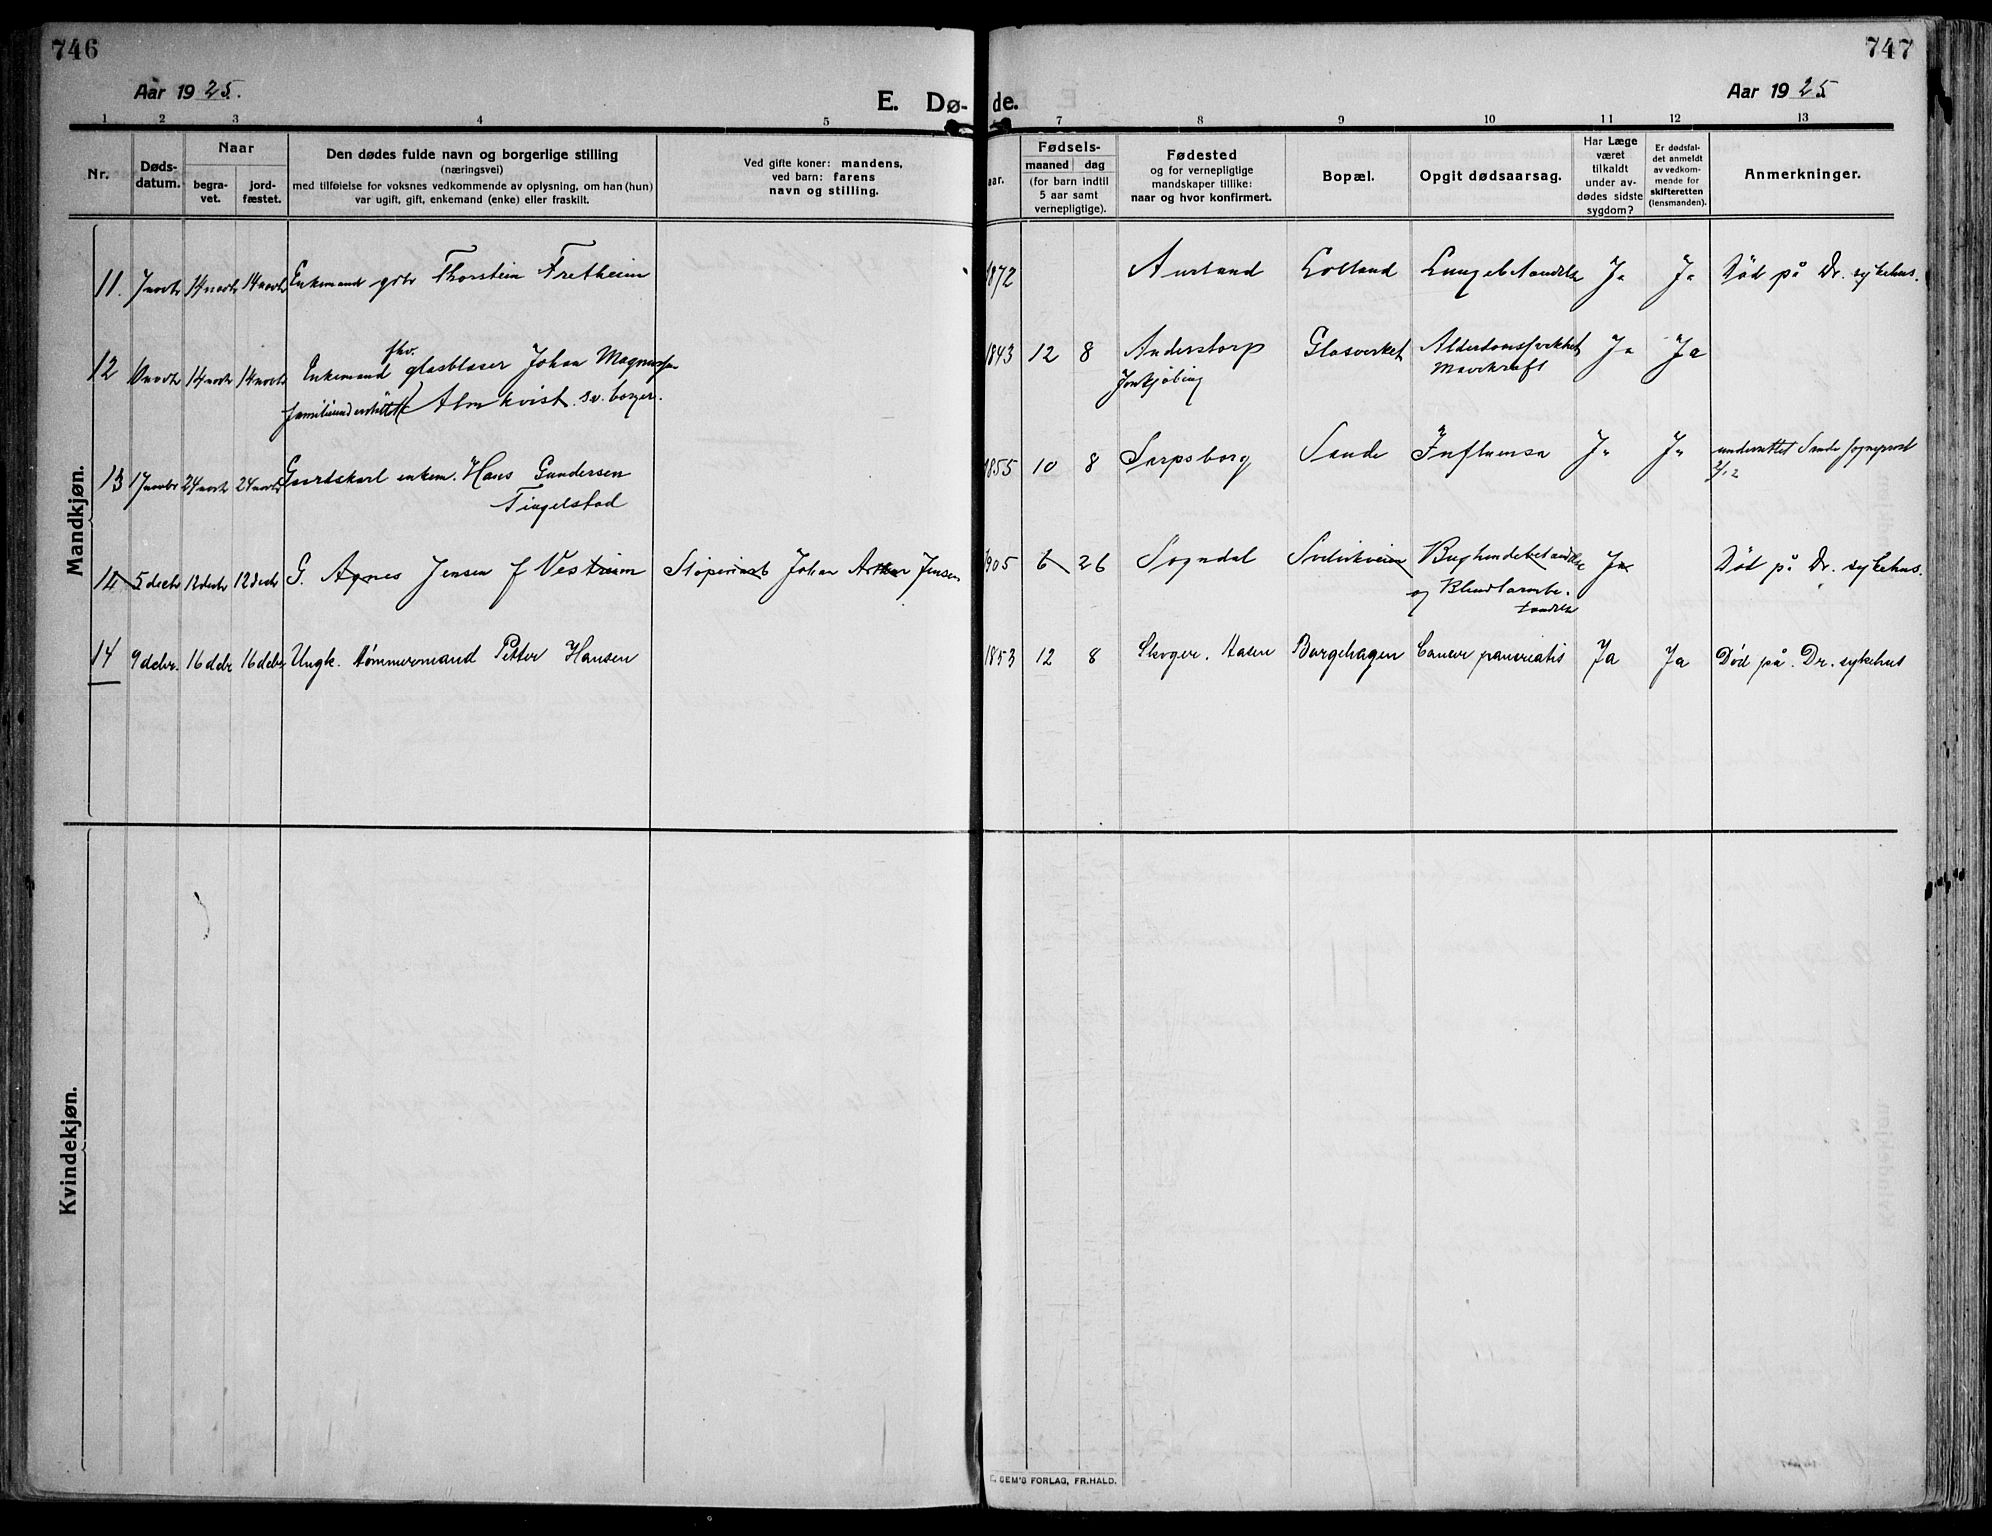 746
747
Aar 1925.
E. Dø-
de.
Aar 1925
1 2 3 4 5 7 8 9 10 11 12 13
Nr.
Døds-
datum.
Naar
begra-
vet.
jord-
fæstet.
Den dødes fulde navn og borgerlige stilling
(næringsvei)
med tilføielse for voksnes vedkommende av oplysning, om han (hun)
var ugift, gift, enkemand (enke) eller fraskilt.
Ved gifte koner: mandens,
ved barn: farens
navn og stilling.
aar.
Fødsels-
maaned dag
(for barn indtil
5 aar samt
vernepligtige).
Fødested
og for vernepligtige
mandskaper tillike:
naar og hvor konfirmert.
Bopæl.
Opgit dødsaarsag.
Har Læge
været
tilkaldt
under av-
dødes sidste
sygdom?
Er dødsfal-
det anmeldt
av vedkom-
mende for
skifteretten
(lensmanden).
Anmerkninger.
Mandkjøn.
11. 7 novbr 14 novbr 14 novbr Enkemand gbr Thorstein Fretheim 1872 Aurland Lolland Lungebetændelse Ja Ja Død på Dr. sykehus.
fhv.
12 14 novbr 14 novbr Enkemand glasblaser Johan Magnussen 1843 12 8 Anderstorp Glasverket Alderdomssvekket Ja Ja
Familieunderstøttet Almkvist. sv. borger. Jonkjøbing Mavekræft
13 17 novbr 24 novbr 24 novbr Gaardskarl enkem. Hans Gundersen 1855 10 8 Sarpsborg Sande Influensa Ja Ja underrettet Sande sogneprest
Tingelstad 2/12
14 5 decbr 12 decbr 12 decbr G. Agnes Jensen f Vestreim Støperiarb Johan Arthur Jensen 1905 6 26 Sogndal Svelvikveien Bughindebetændelse Ja Død på Dr. sykehus.
og Blindtarmbe-
tændelse
14 9 debr. 16 debr 16 debr Ungk. tømmermand Petter Hansen 1853 12 8 Skoger. Aasen Borgehagen Cancer pancreatis Ja Ja Død på Dr. sykehus
Kvindekjøn.
SEM'S FORLAG, FR.HALD.